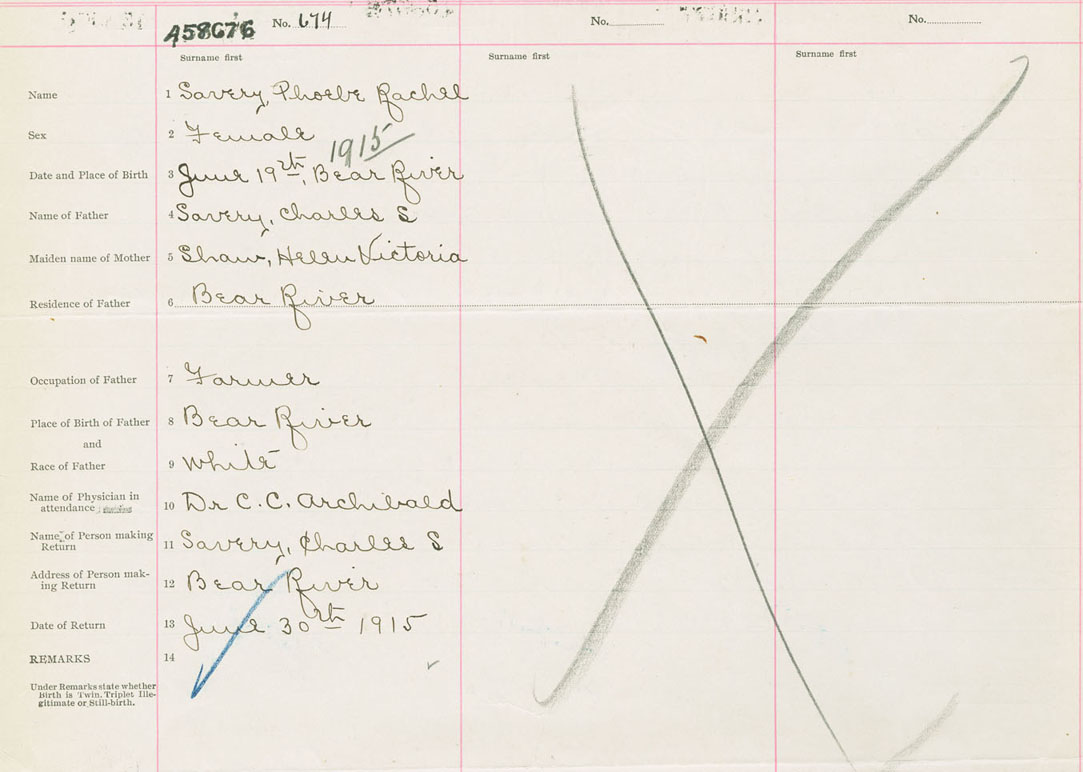 A58676 No. 674 No. No.
Surname first Surname first Surname first
Name 1 Savery, Phoebe Rachel
Sex 2 Female
1915
Date and Place of Birth 3 June 19th, Bear River
Name of Father 4 Savery, Charles S
Maiden name of Mother 5 Shaw, Helen Victoria
Residence of Father 6 Bear River
Occupation of Father 7 Farmer
Place of Birth of Father 8 Bear River
and
Race of Father 9 White
Name of Physician in
attendance 10 Dr C.C. Archibald
Name of Person making
Return 11 Savery, Charles S
Address of Person mak-
ing Return 12 Bear River
Date of Return 13 June 30th 1915
REMARKS 14
Under Remarks state whether
Birth is Twin. Triplet Ille-
gitimate or Still-birth.